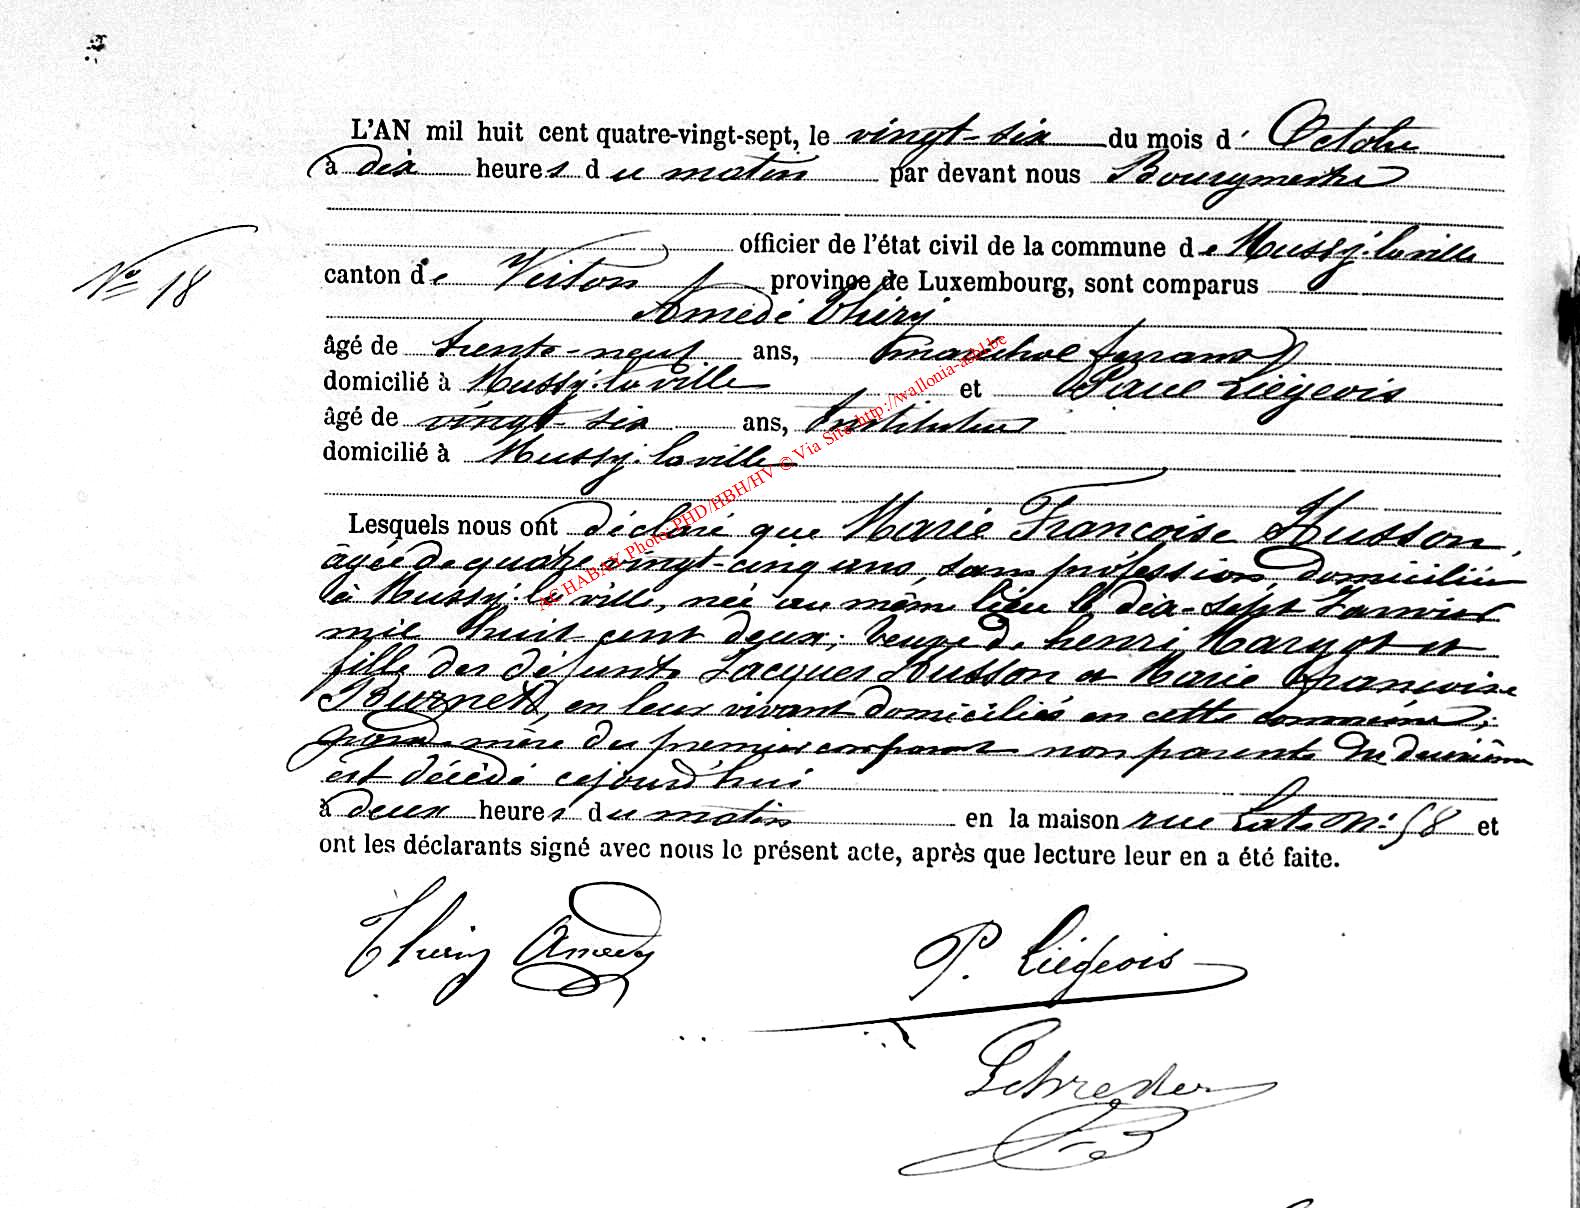 L'AN mil huit cent quatre-vingt-sept, le vingt-six du mois d' Octobre
à dix heures du matin par devant nous Bourgmestre
officier de l'état civil de la commune de Mussy-la-ville
N° 18
canton de Virton province de Luxembourg, sont comparus
Amedé Thiry
âgé de trente-neuf ans, maréchal ferrant
domicilié à Mussy-la-ville et Paul Liégeois
âgé de vingt-six ans, Instituteur
domicilié à Mussy-la-ville
Lesquels nous ont déclaré que Marie Françoise Husson,
âgée de quatre-vingt-cinq ans, sans profession, domiciliée
à Mussy-la-ville, née au même lieu le dix-sept Janvier
mil huit cent deux; veuve de henri Margot et
fille des défunts Jacques Husson et Marie françoise
en leur vivant domiciliés en cette commune;
grand-mère du premier comparant non parente du deuxième
est décédé cejourd'hui
à deux heures du matin en la maison rue N° 58 et
ont les déclarants signé avec nous le présent acte, après que lecture leur en a été faite.
Thiry Amedé
P. Liégeois
ACHABAY Photo PHD/HBH/HV © Via Site http://wallonia-asbl.be